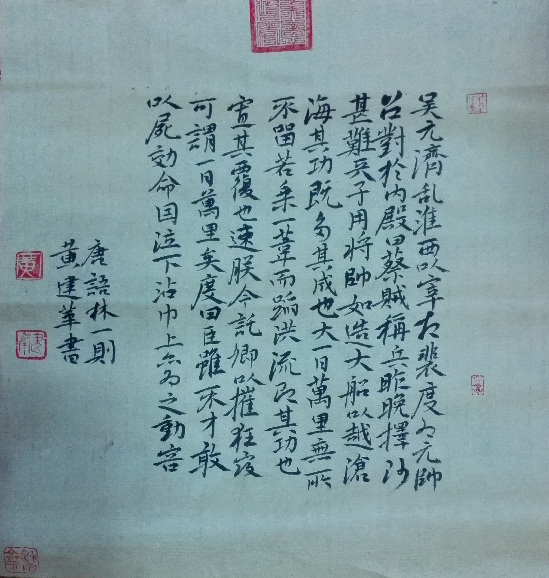 吴元濟乱淮西以宰相裴度为元帥
召對於內殿曰蔡賊稱兵昨晚擇
甚難天子用將帥如造大船以越滄
海其功既多其成也大一日萬里無所
不留若乘一葦而蹈洪流即其功也
寡其覆也速朕今託卿以摧狂寇
可謂一日萬里矣度曰臣雖不才敢
以屍効命因泣下沾巾上亦为之動容
唐語林一則
黄建華書